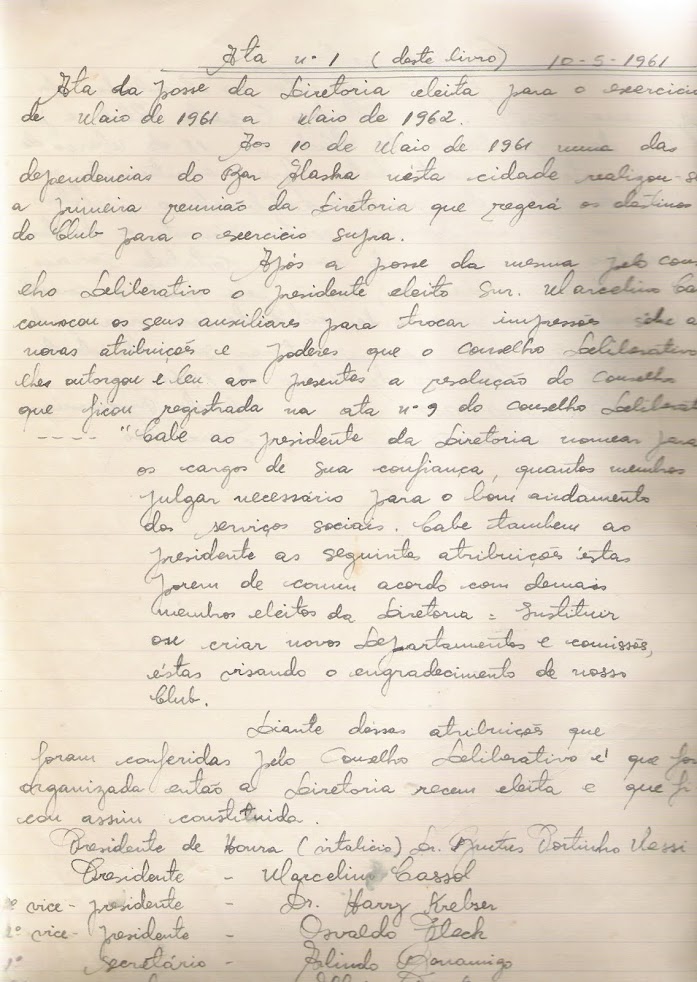 Ata nº 1 (deste livro) 10-5-1961
Ata da posse da Diretoria eleita para o exercicio
de Maio de 1961 a Maio de 1962.
Aos 10 de Maio de 1961 numa das
dependencias do Bar Alaska nésta cidade realizou-s
a primeira reunião da Diretoria que regerá os destinos
do Club para o exercicio supra.
Após a posse da mesma pelo cons
elho Deliberativo o presidente eleito Snr. Marcelino Ca
convocou os seus auxiliares para trocar impressões sobre a
novas atribuições e poderes que o Conselho Deliberativo
lhes outorgou e leu aos presentes a resolução do Conselho
que ficou registrada na ata nº 9 do Conselho Deliberat
---- "Cabe ao presidente da Diretoria nomear para
os cargos de sua confiança, quantos membros
julgar necessário para o bom andamento
dos serviços sociais. Cabe tambem ao
presidente as seguintes atribuições éstas
porem de comum acordo com demais
membros eleitos da Diretoria = Instituir
ou criar novos Departamentos e comissões,
éstas visando o engradecimento de nosso
Club.
Diante dessas atribuições que
foram conferidas pelo Conselho Deliberativo é que foi
organizada então a Diretoria recem eleita e que fi
cou assim constituida.
Presidente de Honra (vitalicio) Dr. Portinho
Presidente - Marcelino Cassol
1º vice-presidente - Dr. Harry Krebser
2º vice-presidente - Osvaldo Fleck
1º secretário - Arlindo Bonamigo